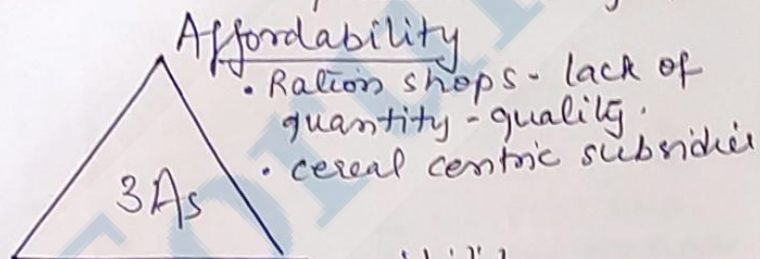 Affordability
• Ration shops - lack of
quantity - quality.
• cereal centric subsidies
3As